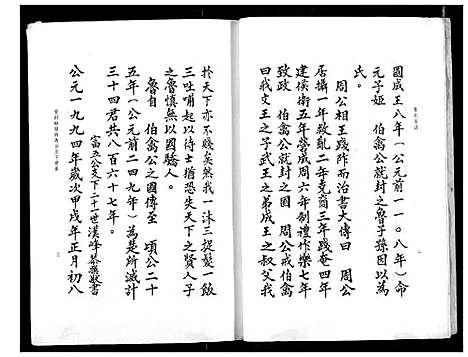 國成王八年（公元前一一。八年）命
元子姬　伯禽公就封之魯子孫因以為
氏。
周公相王踐阼而治書大傳曰　周公
居攝一年救亂二年克商三年踐奄四年
建侯衛五年營成周六年制禮作樂七年
致政　伯禽公就封　周公戒伯禽
曰我文王之子武王之弟成王之叔父
於天下亦不賤矣然我一沐三捉髮一飯
三吐哺起以待士猶恐失天下之賢人子
之魯慎無以國驕人。
魯自　伯禽公之國傳至　頃公二十
五年（公元前二四九年）為楚所滅計
三十四君共八百六十七年。
富五公支下二十一世漢峰恭撰敬書
公元一九九四年歲次甲戌年正月初八
二
三